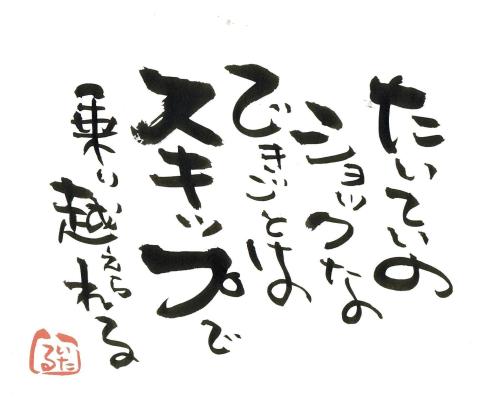 たいていの
ショックな
できごとは
スキップで
乗り越えられる
いたる